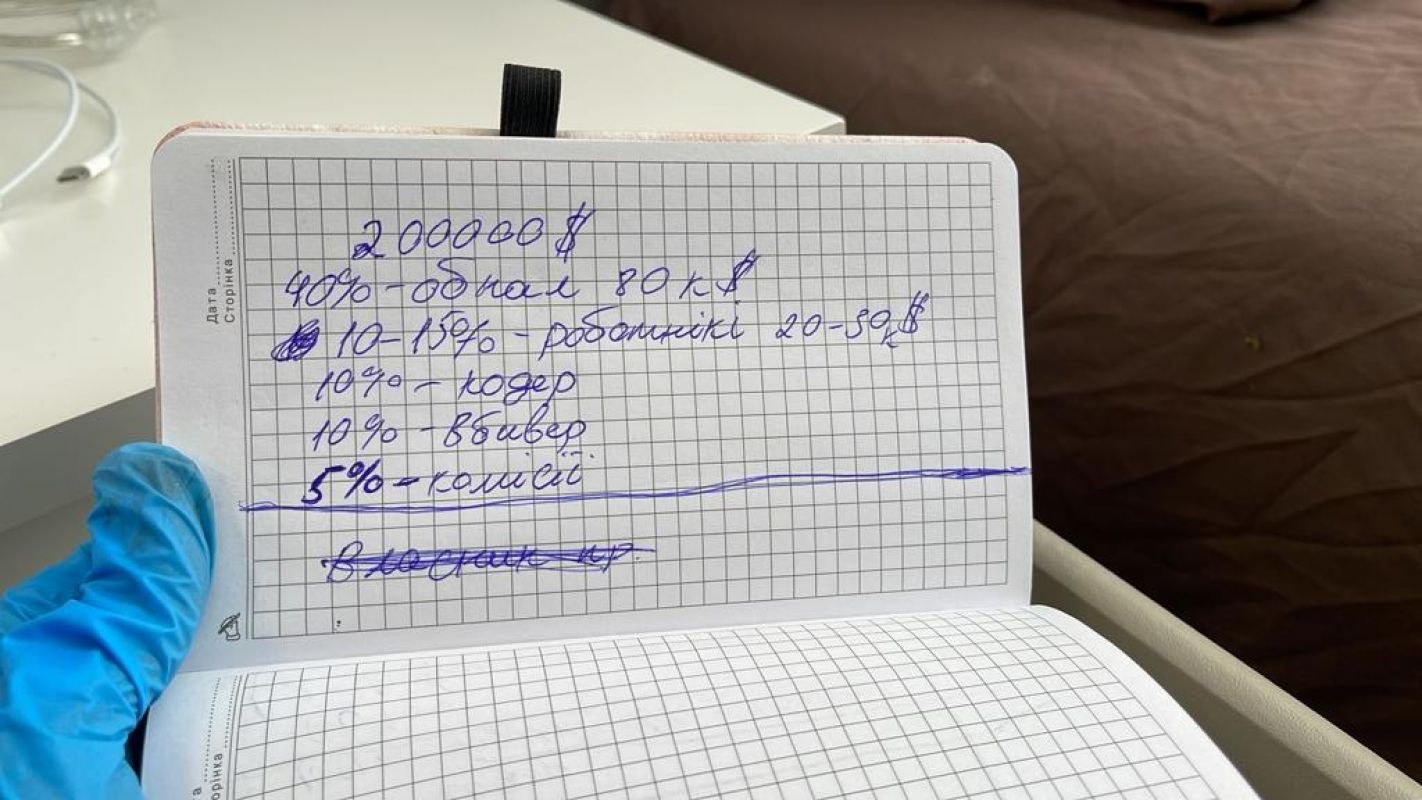 Дата
Сторінка
200000$
40% - обнал 80 к $
10-15% - роботнікі 20-30к$
10% - кодер
10% - вбивер
5% - комісії
Власник пр.